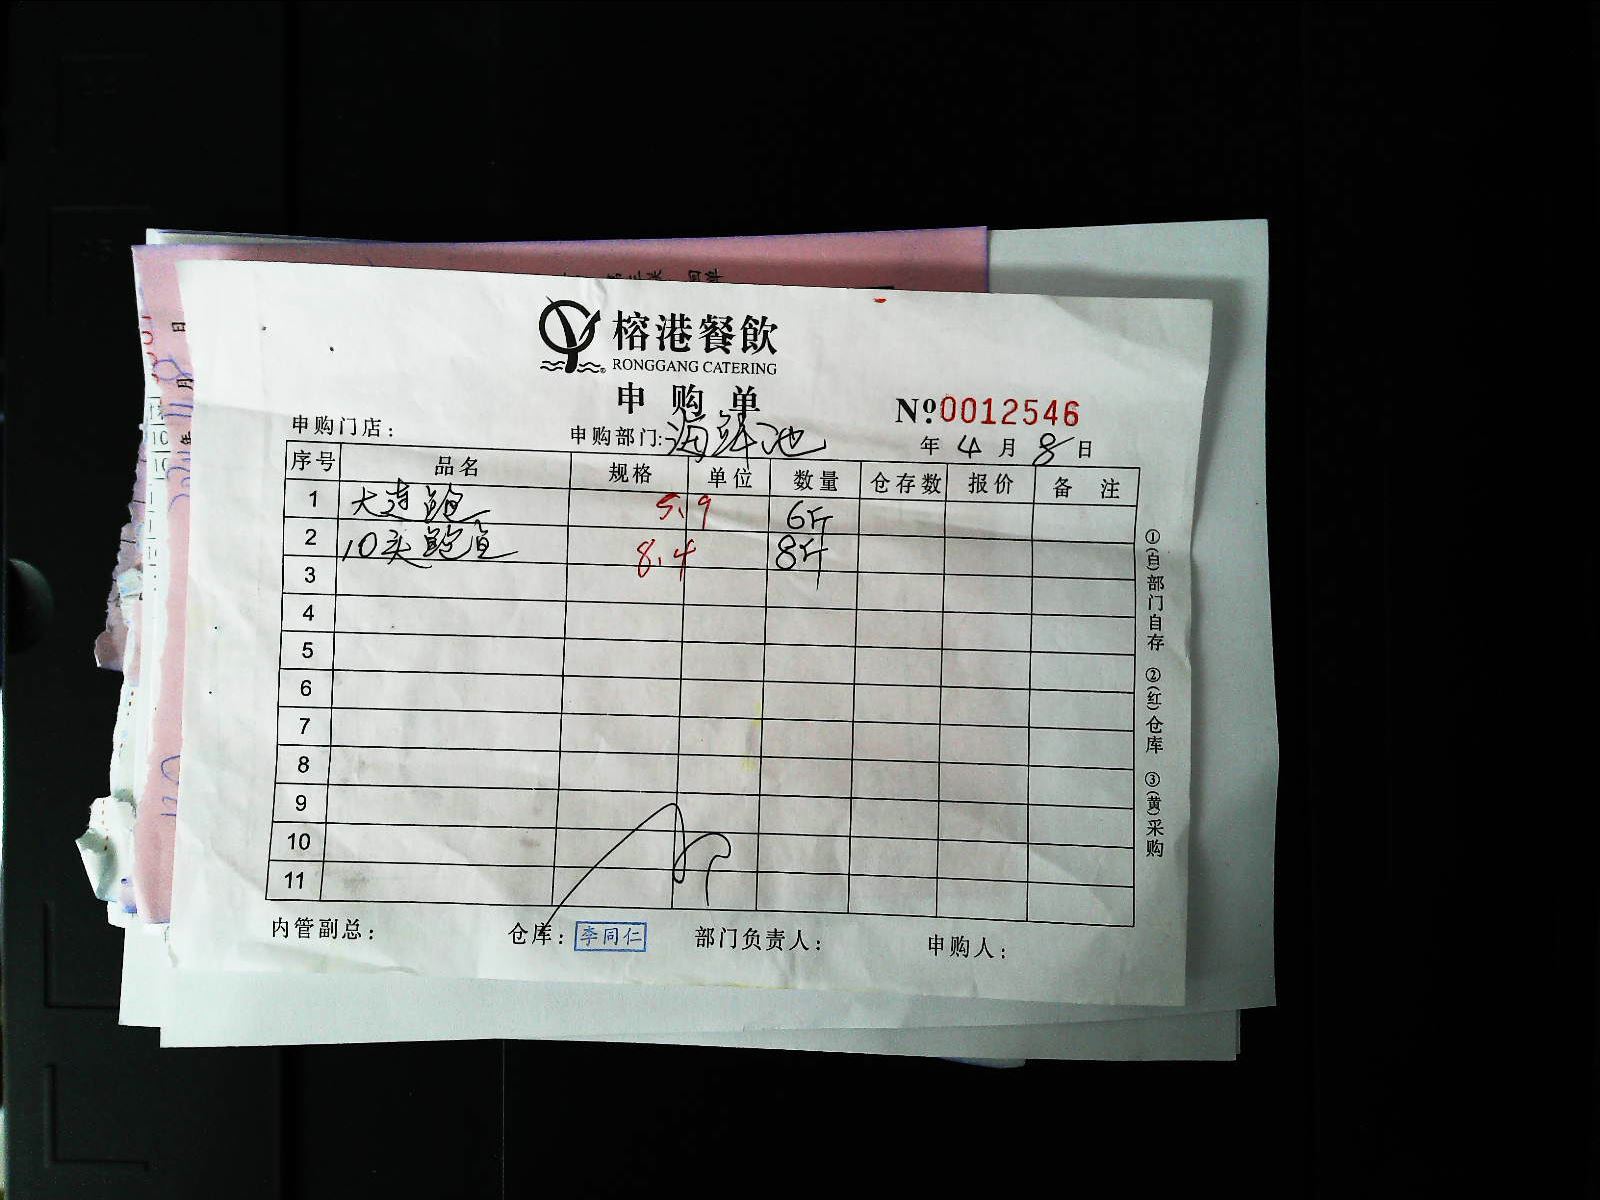 榕港餐飲
RONGGANG CATERING
申购单
№0012546
申购门店： 申购部门：海鲜池 年 4 月 8 日
序号 品名 规格 单位 数量 仓存数 报价 备 注
1 大连鲍 5.9 6斤
2 10头鲍 8.4 8斤
3
4
5
6
7
8
9
10
11
①(白)部门自存 ②(红)仓库 ③(黄)采购
内管副总： 仓库：李同仁 部门负责人： 申购人：